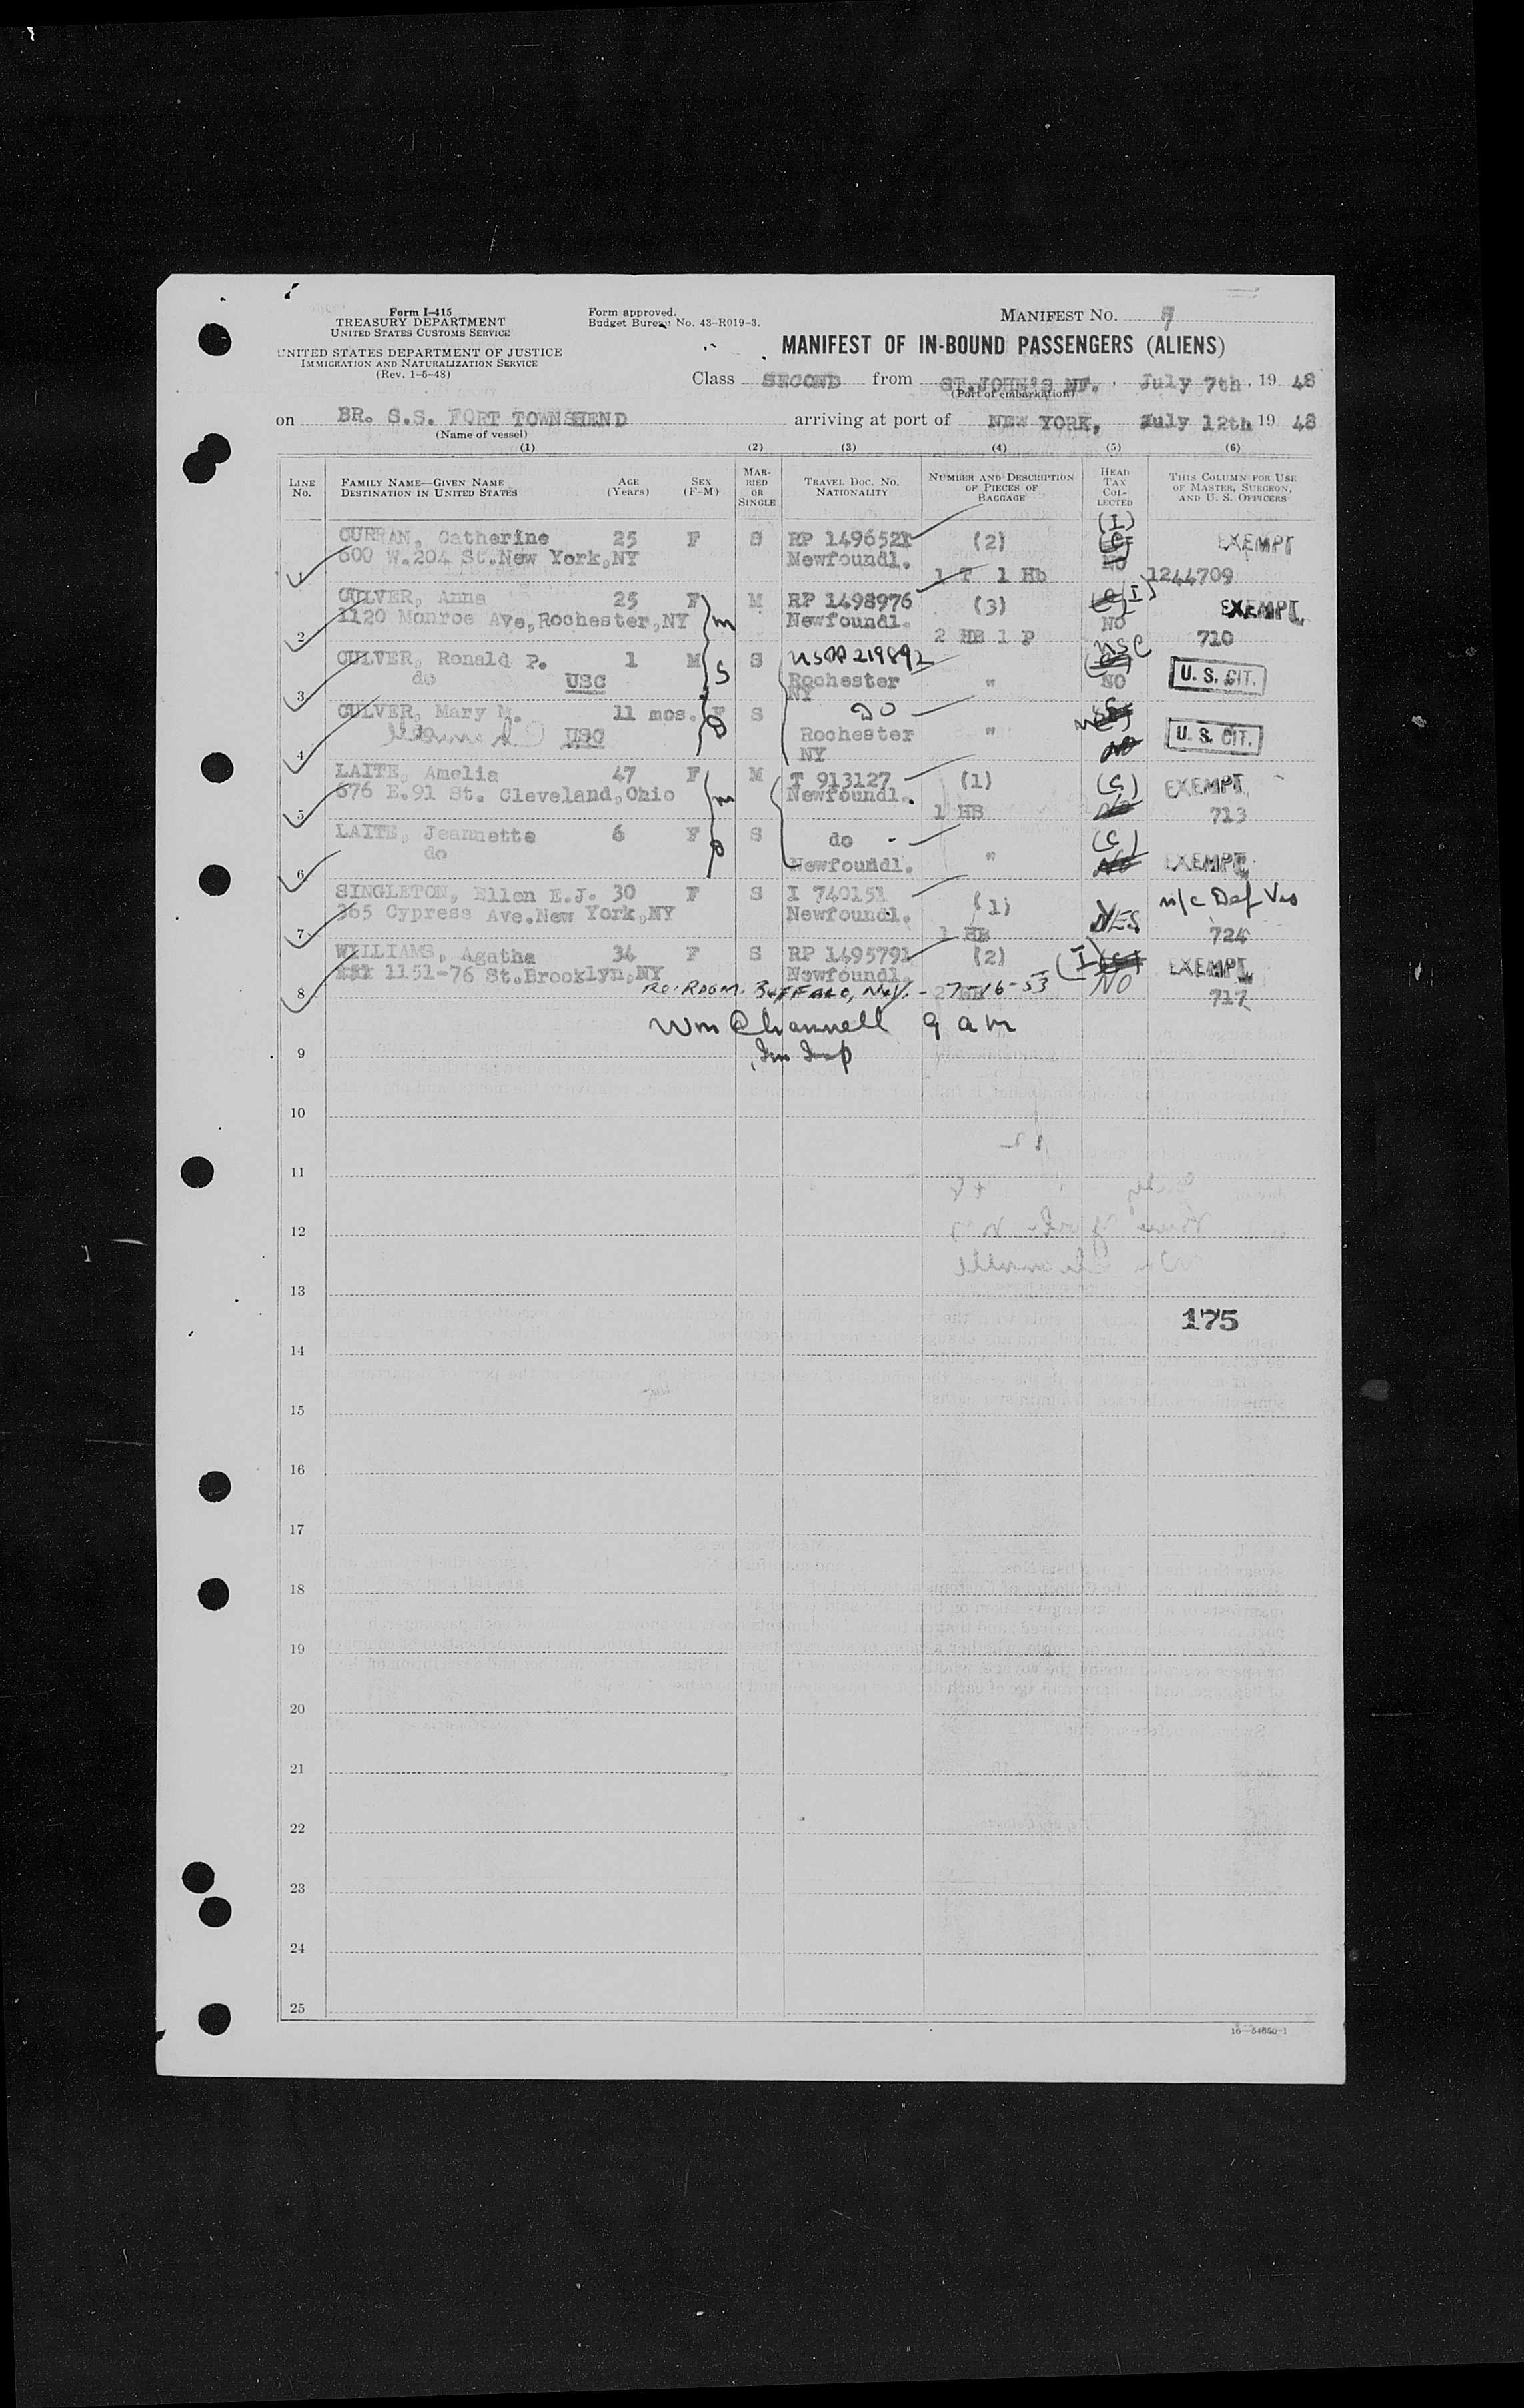 Form I-415
TREASURY DEPARTMENT
UNITED STATES CUSTOMS SERVICE
UNITED STATES DEPARTMENT OF JUSTICE
IMMIGRATION AND NATURALIZATION SERVICE
(Rev. 1-5-48)
Form approved.
Budget Bureau No. 43-R019-3.
MANIFEST NO.
MANIFEST OF IN-BOUND PASSENGERS (ALIENS)
Class SECOND from ST. JOHN'S NF., July 7th, 19 48
(Port of embarkation)
on BR. S.S. FORT TOWNSHEND arriving at port of NEW YORK, July 12th 19 48
(Name of vessel)
(1) (2) (3) (4) (5) (6)
LINE NO. FAMILY NAME—GIVEN NAME DESTINATION IN UNITED STATES AGE (Years) SEX (F-M) MARRIED OR SINGLE TRAVEL DOC. NO. NATIONALITY NUMBER AND DESCRIPTION OF PIECES OF BAGGAGE HEAD TAX COLLECTED THIS COLUMN FOR USE OF MASTER, SURGEON, AND U. S. OFFICERS
(I)
CURRAN, Catherine 25 F S RP 1496521 (2) (C) EXEMPT
600 W.204 St.New York,NY Newfoundl. NO
1 1 T 1 Hb 1244709
CULVER, Anna 25 F M RP 1498976 (3) (C)(I) EXEMPT
1120 Monroe Ave,Rochester,NY m Newfoundl. NO
2 2 HB 1 P 710
CULVER, Ronald P. 1 M S S USPP 219892 USC
do USC Rochester " NO U. S. CIT.
3 NY
CULVER, Mary M. 11 mos. F S DO
USC Rochester " NO U. S. CIT.
4 NY
LAITE, Amelia 47 F M T 913127 (1) (C) EXEMPT
676 E.91 St. Cleveland,Ohio m Newfoundl. NO
5 1 HB 713
LAITE, Jeannette 6 F S do - (C)
do Newfoundl. " NO EXEMPT
6
SINGLETON, Ellen E.J. 30 F S I 740151 (1) n/c Def Vis
365 Cypress Ave.New York,NY Newfoundl. YES
7 1 HB 724
WILLIAMS, Agatha 34 F S RP 1495791 (2) (I)(C) EXEMPT
1151-76 St.Brooklyn,NY Newfoundl. NO
8 Re: Rodm. Buffalo, N.Y. - 7-16-53 717
Wm Channell
9
Imm Insp
10
11
12
13
175
14
15
16
17
18
19
20
21
22
23
24
25
16—54650-1